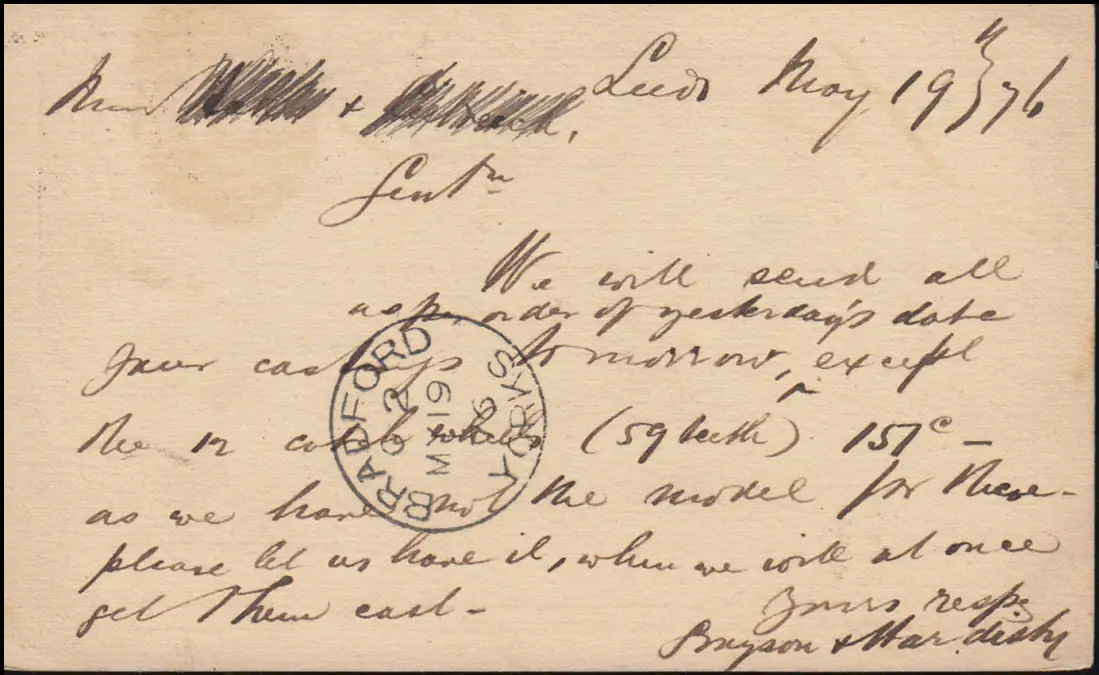 Leeds May 19 / 76
Messrs + 
Gentn
We will send all
as per order of yesterday's date
your castings tomorrow, except
the 12 wheels (59 teeth) 151c —
as we have not the model for these -
please let us have it, when we will at once
get them cast -
Yours respy
Bryson + Hardisty
BRADFORD YORKS
G 2
MY 19
76